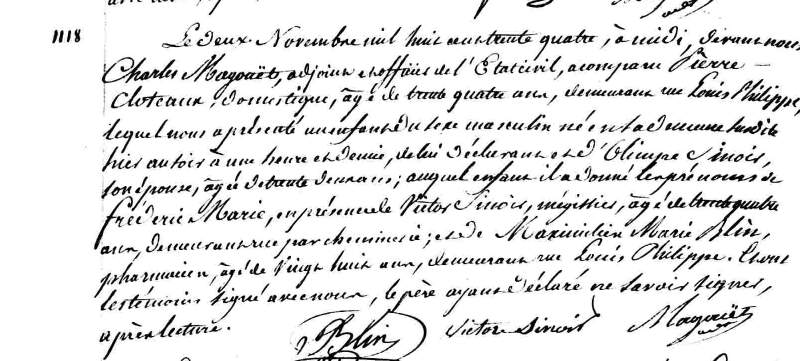 1118
Le deux Novembre mil huit cent trente quatre, à midi, devant nous
Charles Magouët, adjoint et offier de l'Etat civil, a comparu Pierre
Cloteaux, domestique, âgé de trente quatre ans, demeurant rue Louis Philippe,
lequel nous a présenté un enfant du sexe masculin né en sa demeure susdite
hier au soir à une heure et demie, de lui déclarant et d'Olimpe Sinois,
son épouse, âgée de trente deux ans; auquel enfant il a donné les prénoms de
Frédéric Marie, en présence de Victor Sinois, mégissier, âgé de trente quatre
ans, demeurant rue parcheminerie; et de Maximilien Marie Blin,
pharmacien, âgé de vingt huit ans, demeurant rue Louis Philippe. Et ont
les témoins signé avec nous, le père ayant déclaré ne savoir signer,
après lecture.
Blin Victor Sinois Magouët